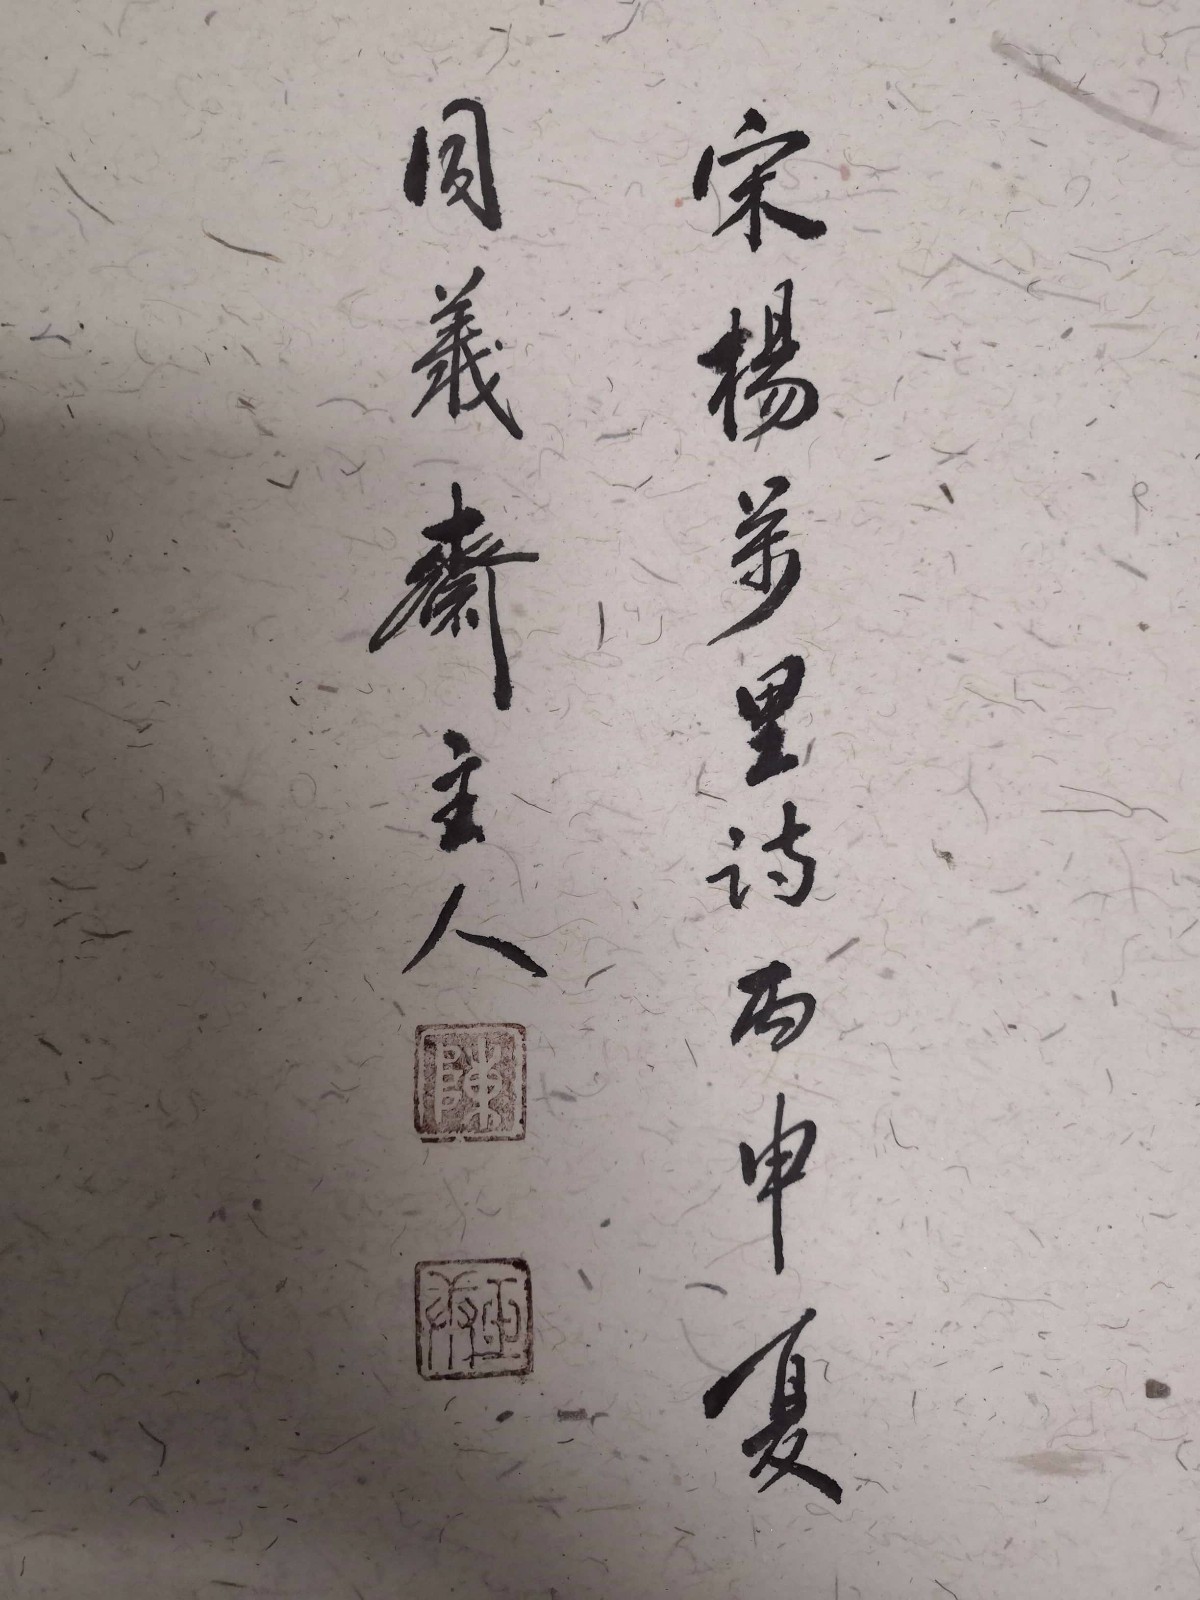 宋楊萬里诗丙申夏
同義齋主人
陳